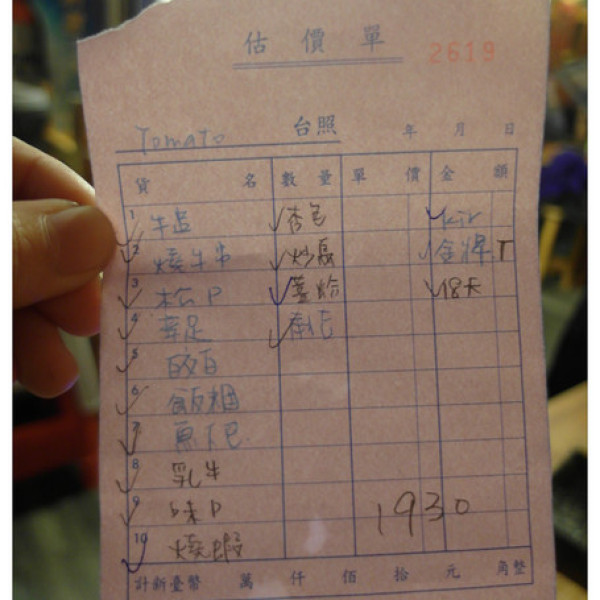 估價單
2619
Tomato 台照 年 月 日
貨名 數量 單價 金額
1 杏包 Kir
2 燒牛串 金牌 T
3 松P 薑蛤 18天
4
5
6 飯糰
7 魚下巴
8 乳牛
9 味P 1930
10 燒蝦
計新臺幣 萬 仟 佰 拾 元 角整